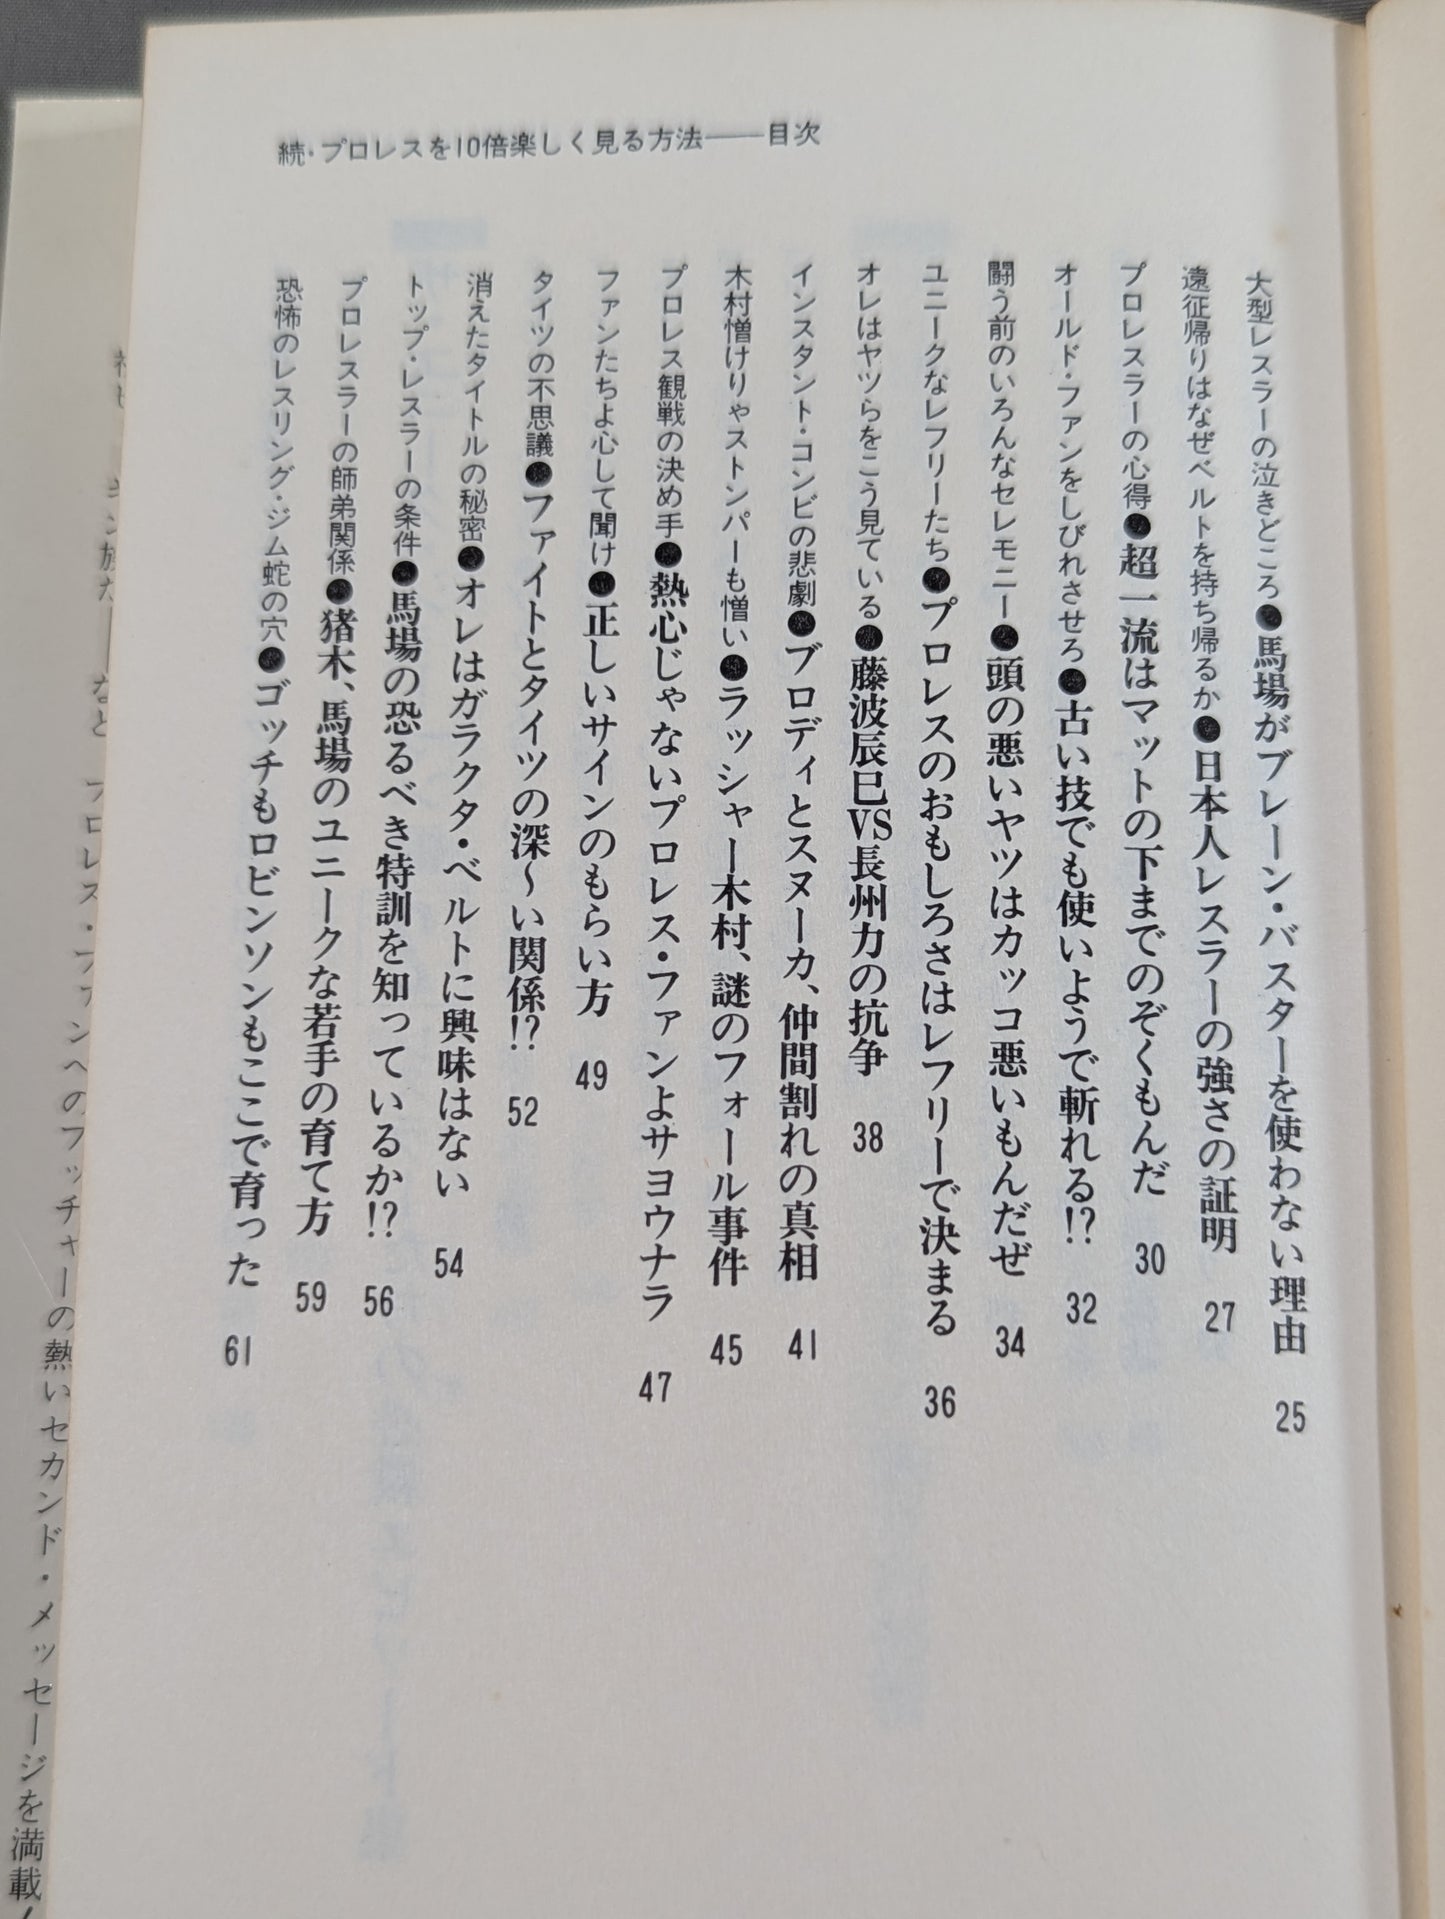 続・プロレスを10倍楽しく見る方法――目次
大型レスラーの泣きどころ●馬場がブレーン・バスターを使わない理由 25
遠征帰りはなぜベルトを持ち帰るか●日本人レスラーの強さの証明 27
プロレスラーの心得●超一流はマットの下までのぞくもんだ 30
オールド・ファンをしびれさせろ●古い技でも使いようで斬れる!? 32
闘う前のいろんなセレモニー●頭の悪いヤツはカッコ悪いもんだぜ 34
ユニークなレフリーたち●プロレスのおもしろさはレフリーで決まる 36
オレはヤツらをこう見ている●藤波辰巳VS長州力の抗争 38
インスタント・コンビの悲劇●ブロディとスヌーカ、仲間割れの真相 41
木村憎けりゃストンパーも憎い●ラッシャー木村、謎のフォール事件 45
プロレス観戦の決め手●熱心じゃないプロレス・ファンよサヨウナラ 47
ファンたちよ心して聞け●正しいサインのもらい方 49
タイツの不思議●ファイトとタイツの深〜い関係!? 52
消えたタイトルの秘密●オレはガラクタ・ベルトに興味はない 54
トップ・レスラーの条件●馬場の恐るべき特訓を知っているか!? 56
プロレスラーの師弟関係●猪木、馬場のユニークな若手の育て方 59
恐怖のレスリング・ジム蛇の穴●ゴッチもロビンソンもここで育った 61
プロレス・ファンへのブッチャーの熱いセカンド・メッセージを満載